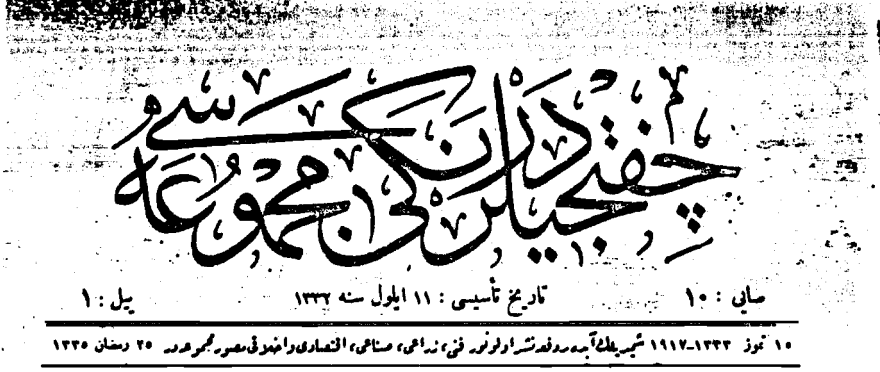 چفتجیلر درنکی مجموعه سی
صایی : ۱۰
تاریخ تأسیسی : ۱۱ ایلول سنه ۱۳۳۲
ییل : ۱
۱۵ تموز ۱۳۳۳-۱۹۱۷ شیمدیلك آیده بر دفعه نشر اولونور فنی، زراعی، صناعی، اقتصادی و اخلاقی مصور مجموعه در ۲۵ رمضان ۱۳۳۵